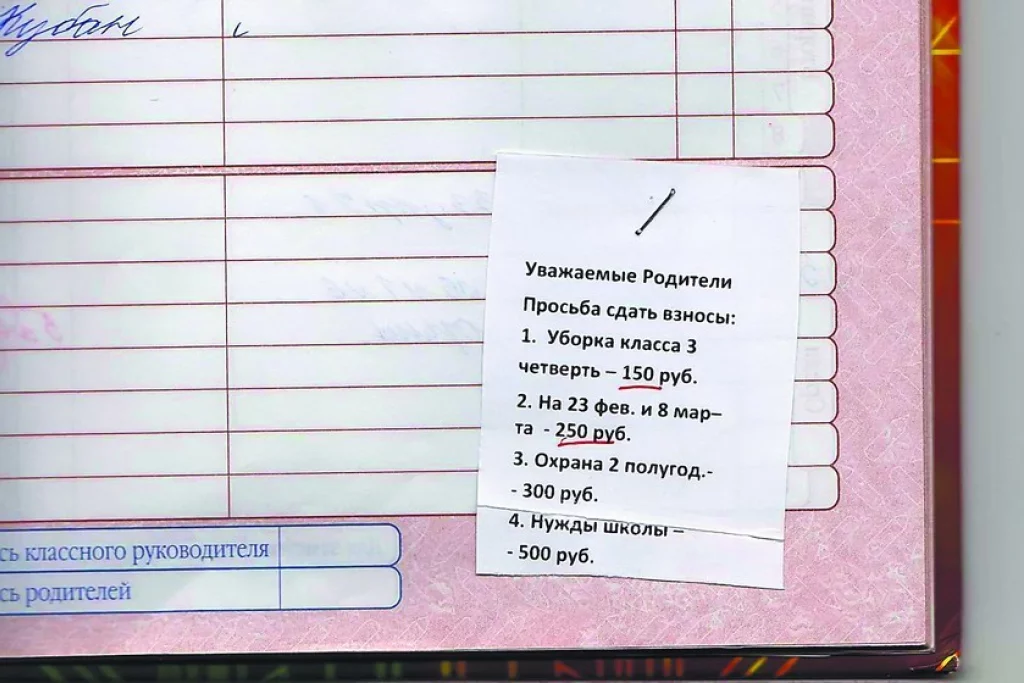 Кубан
Уважаемые Родители
Просьба сдать взносы:
1. Уборка класса 3
четверть – 150 руб.
2. На 23 фев. и 8 мар–
та - 250 руб.
3. Охрана 2 полугод.-
- 300 руб.
4. Нужды школы –
- 500 руб.
сь классного руководителя
сь родителей